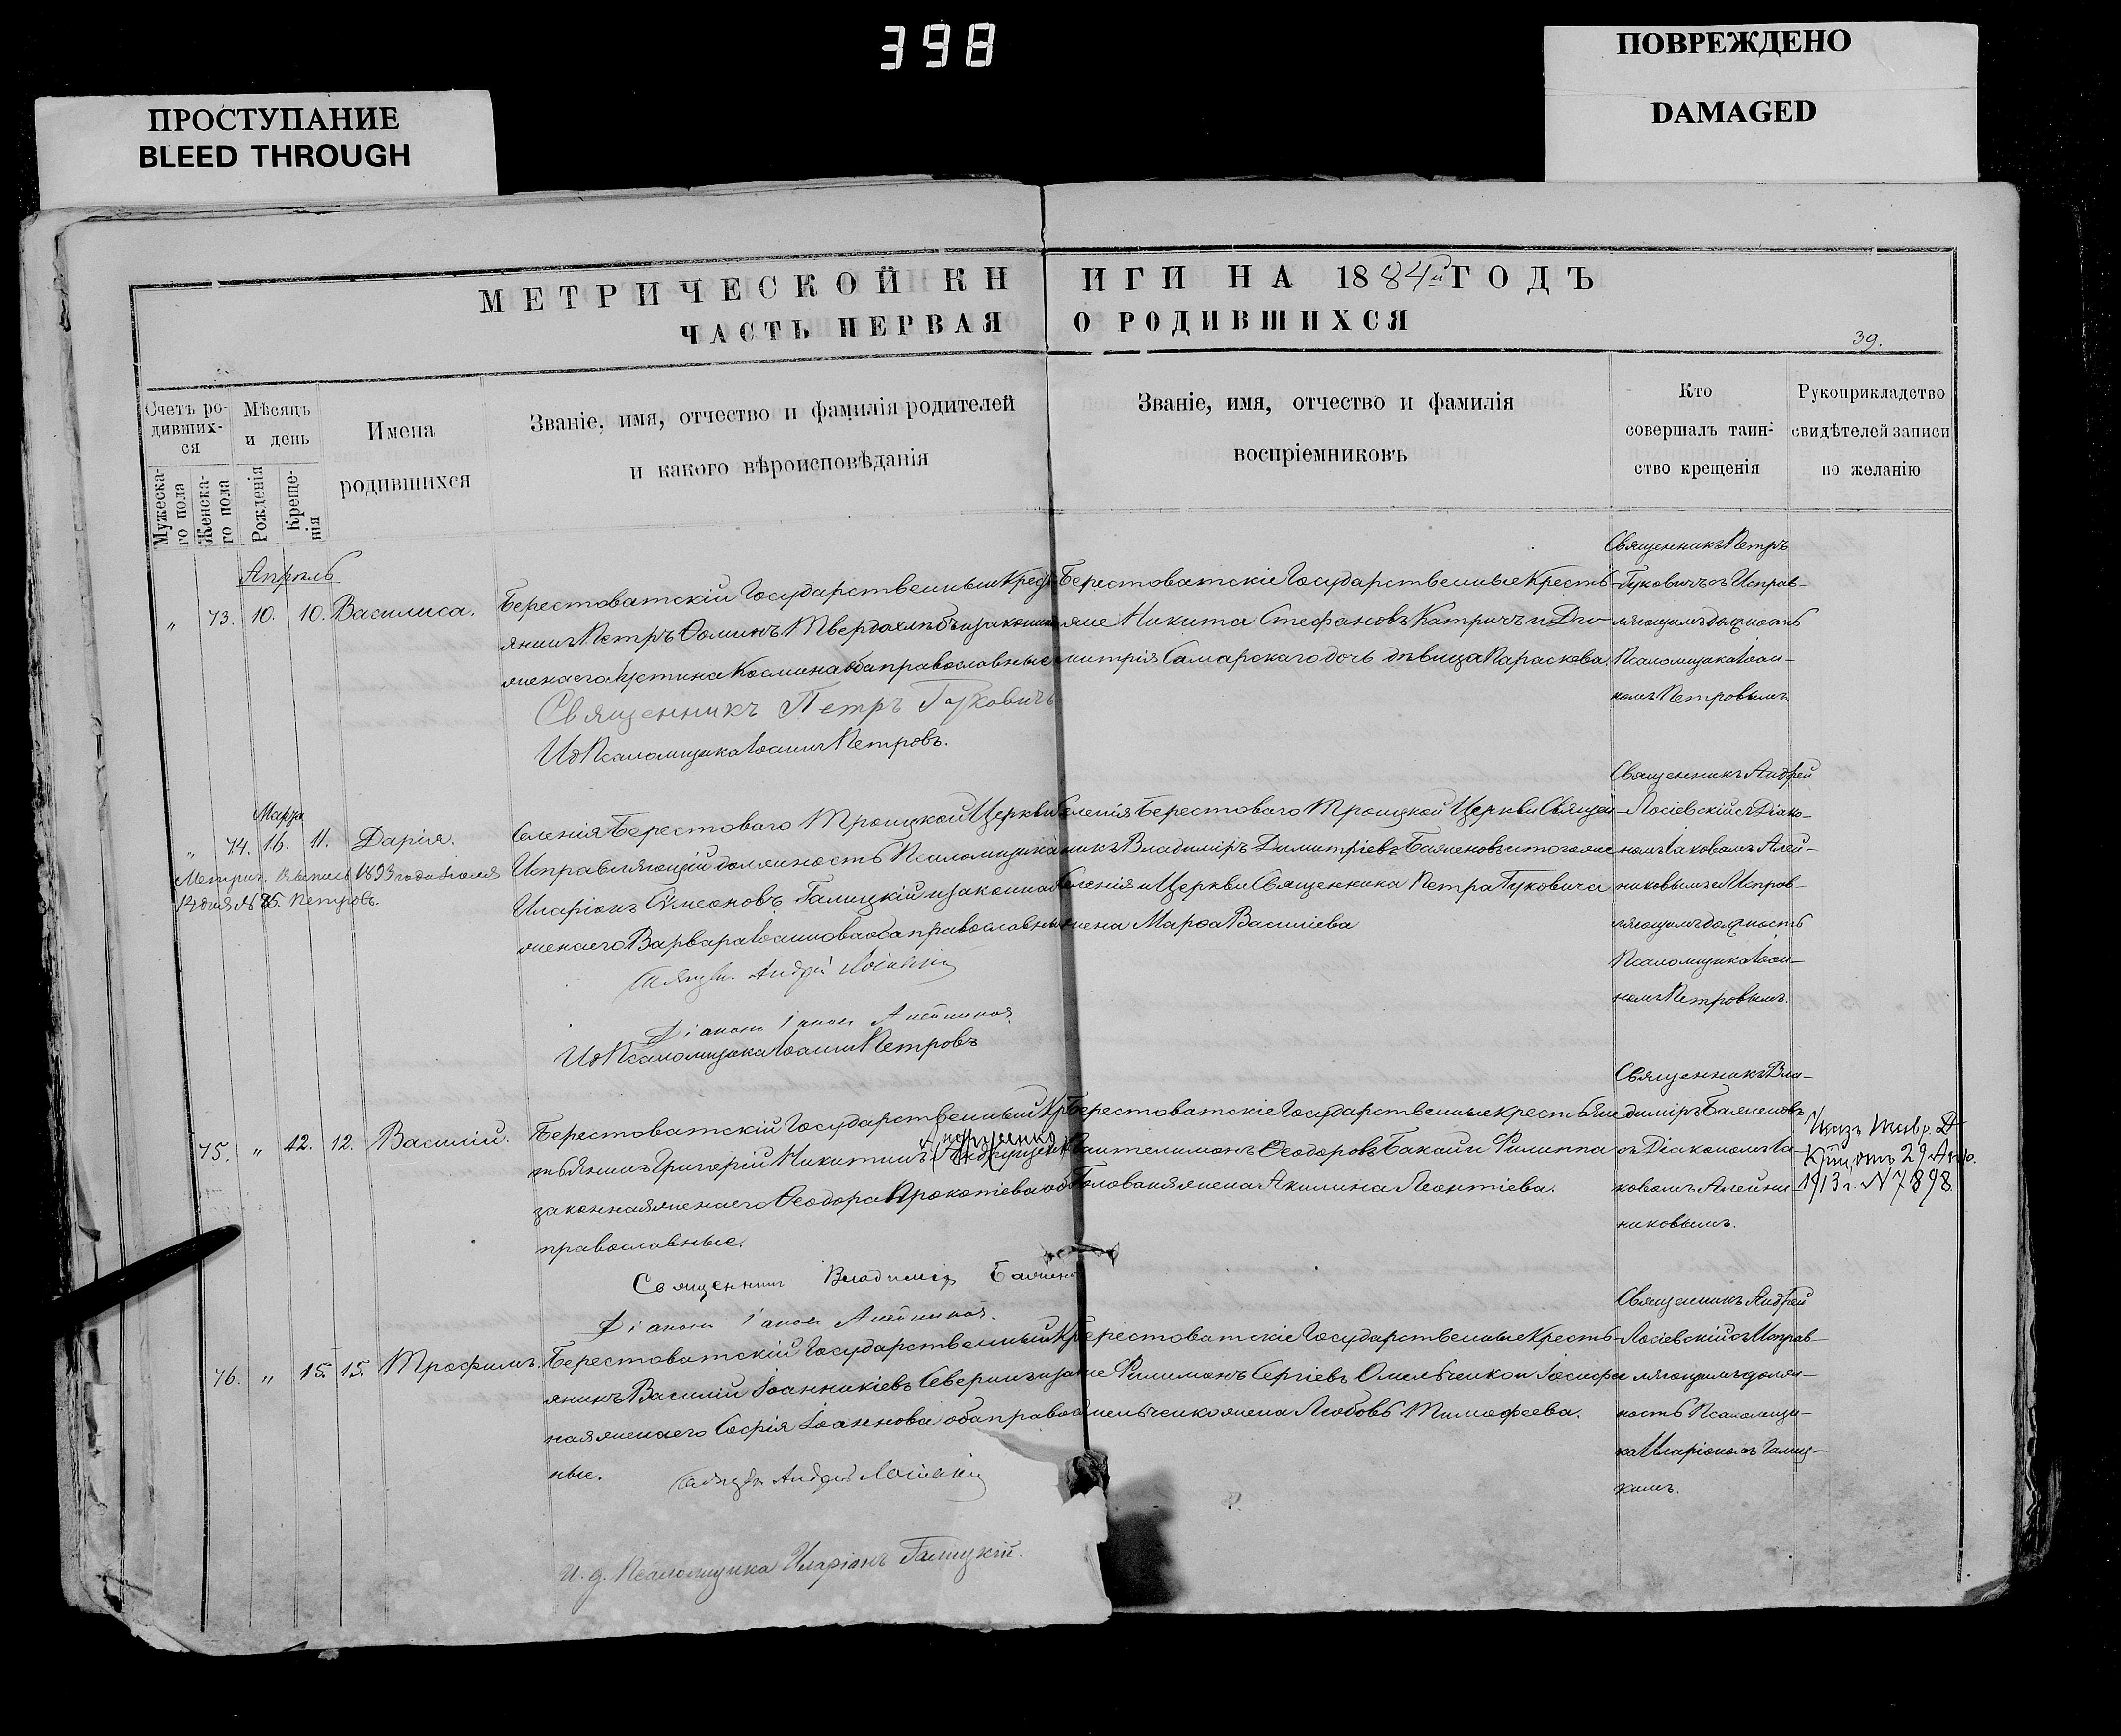 398
ПРОСТУПАНИЕ
BLEED THROUGH
ПОВРЕЖДЕНО
DAMAGED
МЕТРИЧЕСКОЙ КНИГИ НА 1884й ГОДЪ
ЧАСТЬ ПЕРВАЯ О РОДИВШИХСЯ
39.
Счетъ ро-
дивших-
ся
Мужеска-
го пола
Женска-
го пола
Мѣсяцъ
и день
Рожденія
Креще-
нія
Имена
родившихся
Званіе, имя, отчество и фамилія родителей
и какого вѣроисповѣданія
Званіе, имя, отчество и фамилія
воспріемниковъ
Кто
совершалъ таин-
ство крещенія
Рукоприкладство
свидѣтелей записи
по желанію
Апрѣль
„ 73. 10. 10. Василиса.
Берестоватскій Государственный Крест
янинъ Петръ Ѳоминъ Твердохлѣбъ и законная
жена его Іустина Космина оба православные
Священникъ Петръ Гуковичъ
Ид Псаломщика Іоаннъ Петровъ.
Берестоватскіе Государственные Кресть-
яне Никита Стефановъ Катричъ и Ди-
митрія Самарскаго дочь дѣвица Параскева.
Священникъ Петръ
Гуковичъ съ Исправ-
ляющимъ должность
Псаломщика Іоан-
номъ Петровымъ.
Марта
„ 74. 16. 11. Дарія.
Метрич. выпись 1893 года Іюля
14 дня № 85. Петровъ.
Селенія Берестоваго Троицкой Церкви
Исправляющій должность Псаломщика
Иларіонъ Сѵмеоновъ Галицкій и законная
жена его Варвара Іоаннова оба православные
Священ. Андрей Лосіевскій
Діаконъ Іаковъ Алейниковъ
Ид Псаломщика Іоаннъ Петровъ
Селенія Берестоваго Троицкой Церкви Священ-
никъ Владиміръ Димитріевъ Баженовъ и тогоже
Селенія и Церкви Священника Петра Гуковича
жена Марѳа Василіева
Священникъ Андрей
Лосіевскій съ Діако-
номъ Іаковомъ Алей-
никовымъ и Исправ-
ляющимъ должность
Псаломщика Іоан-
номъ Петровымъ.
75. „ 12. 12. Василій.
Берестоватскій Государственный Кре
стьянинъ Григорій Никитинъ (Андрущенко)
законная жена его Ѳеодора Прокопіева оба
православные.
Священникъ Владиміръ Баженовъ
Діаконъ Іаковъ Алейниковъ.
Берестоватскіе Государственные крестьяне
Пантелимонъ Ѳеодоровъ Бакай и Филиппа
Голованя жена Акилина Леонтіева.
Священникъ Вла-
диміръ Баженовъ
съ Діакономъ Іа-
ковомъ Алейни-
никовымъ.
Указъ Тавр. Д
К. отъ 29 Апр.
1913 г. N 7898.
76. „ 15. 15. Трофимъ.
Берестоватскій Государственный Кр
янинъ Василій Іоанникіевъ Северинъ и закон
ная жена его Софія Іоаннова оба православ
ные.
Священ. Андрей Лосіевскій
и. д. Псаломщика Иларіонъ Галицкій.
Берестоватскіе Государственные Кресть-
яне Филимонъ Сергіевъ Омельченко и Іосифа
Омельченко жена Любовь Тимофеева.
Священникъ Андрей
Лосіевскій съ Исправ-
ляющимъ долж-
ность Псаломщи-
ка Иларіономъ Галиц-
кимъ.